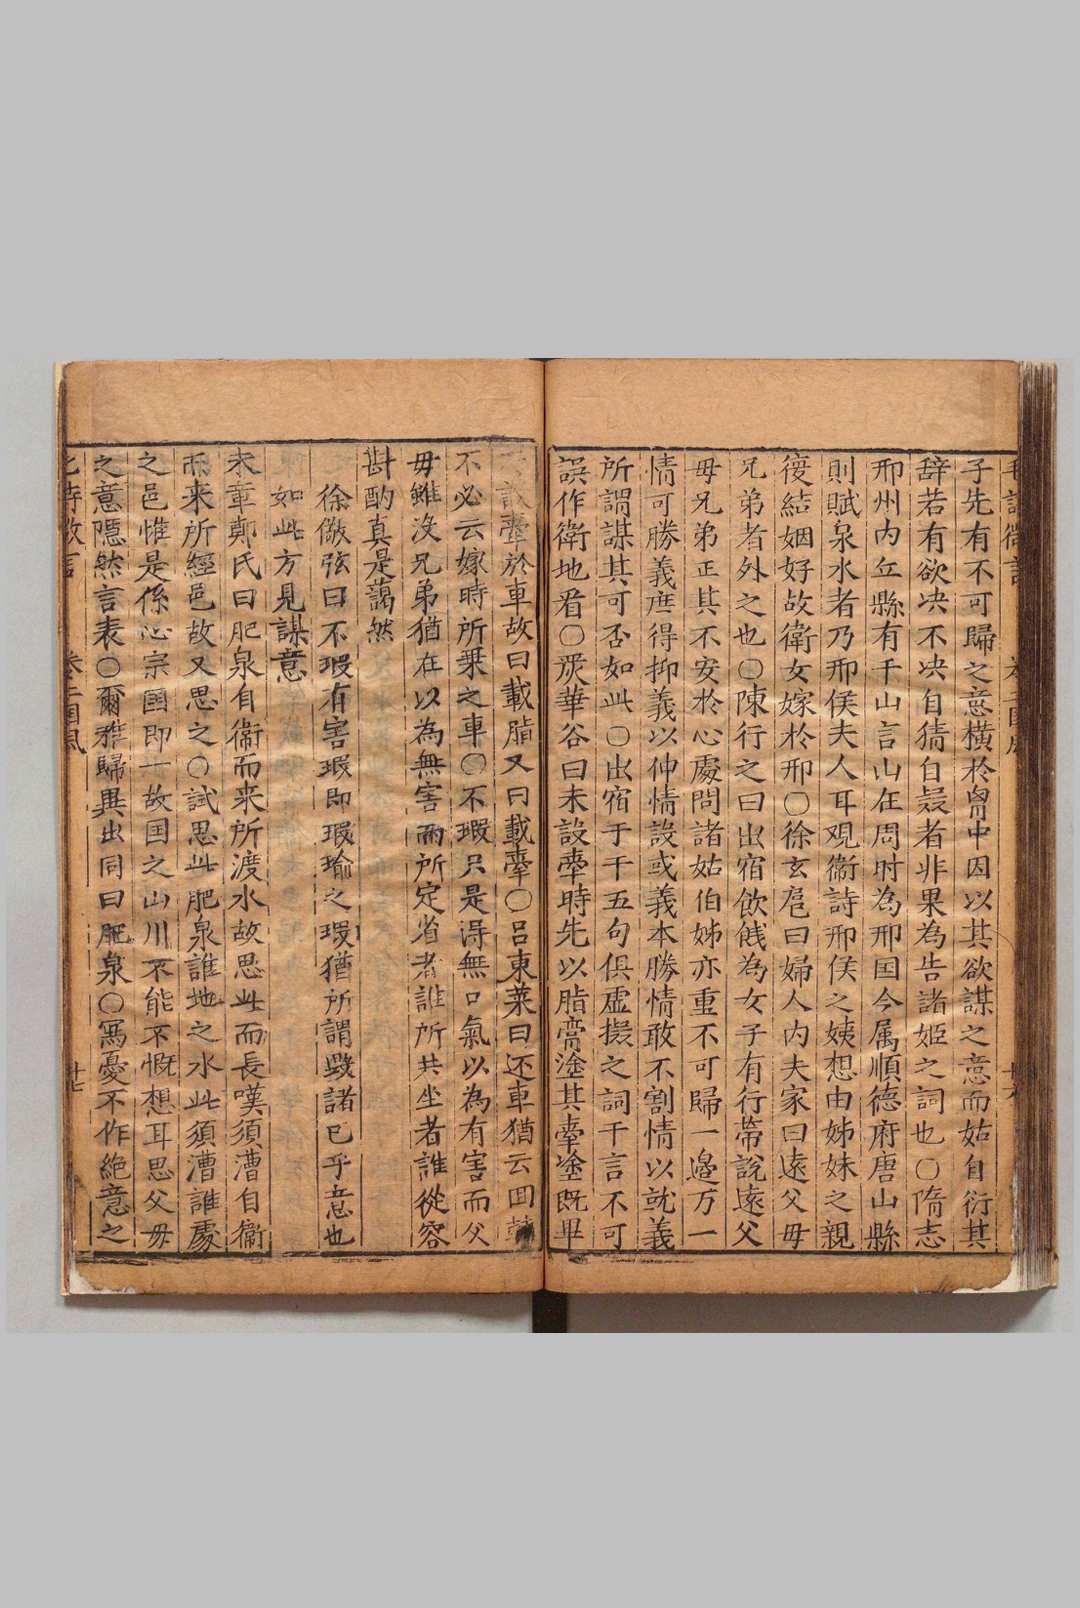 子先有不可歸之意橫於胷中因以其欲謀之意而姑自衍其
辞若有欲决不决自猜自疑者非果為告諸姬之詞也○隋志
邢州内丘縣有千山言山在周时為邢国今属順德府唐山縣
則賦泉水者乃邢侯夫人耳观衛詩邢侯之姨想由姊妹之親
復結姻好故衛女嫁於邢○徐玄扈曰婦人内夫家曰遠父毋
兄弟者外之也○陳行之曰出宿飲餞為女子有行帶說遠父
毋兄弟正其不安於心處問諸姑伯姊亦重不可歸一邉万一
情可勝義庶得抑義以仲情設或義本勝情敢不割情以就義
所謂謀其可否如此○出宿于干五句俱虚擬之詞干言不可
誤作衛地看○嚴華谷曰未設舝時先以脂膏塗其舝塗既畢
設舝於車故曰載脂又曰載舝○吕東萊曰还車猶云回轅
不必云嫁時所乗之車○不瑕只是淂無口氣以為有害而父
毋雖沒兄弟猶在以為無害而所定省者誰所共坐者誰從容
斟酌真是藹然
徐儆弦曰不瑕有害瑕即瑕瑜之瑕猶所謂毀諸已乎意也
如此方見謀意
末章鄭氏曰肥泉自衞而来所渡水故思此而長嘆須漕自衞
而来所經邑故又思之○試思此肥泉誰地之水此須漕誰處
之邑惟是係心宗國即一故国之山川不能不慨想耳思父毋
之意隱然言表○爾雅歸異出同曰肥泉○寫憂不作絶意之
詩微言 卷二国风 廿七